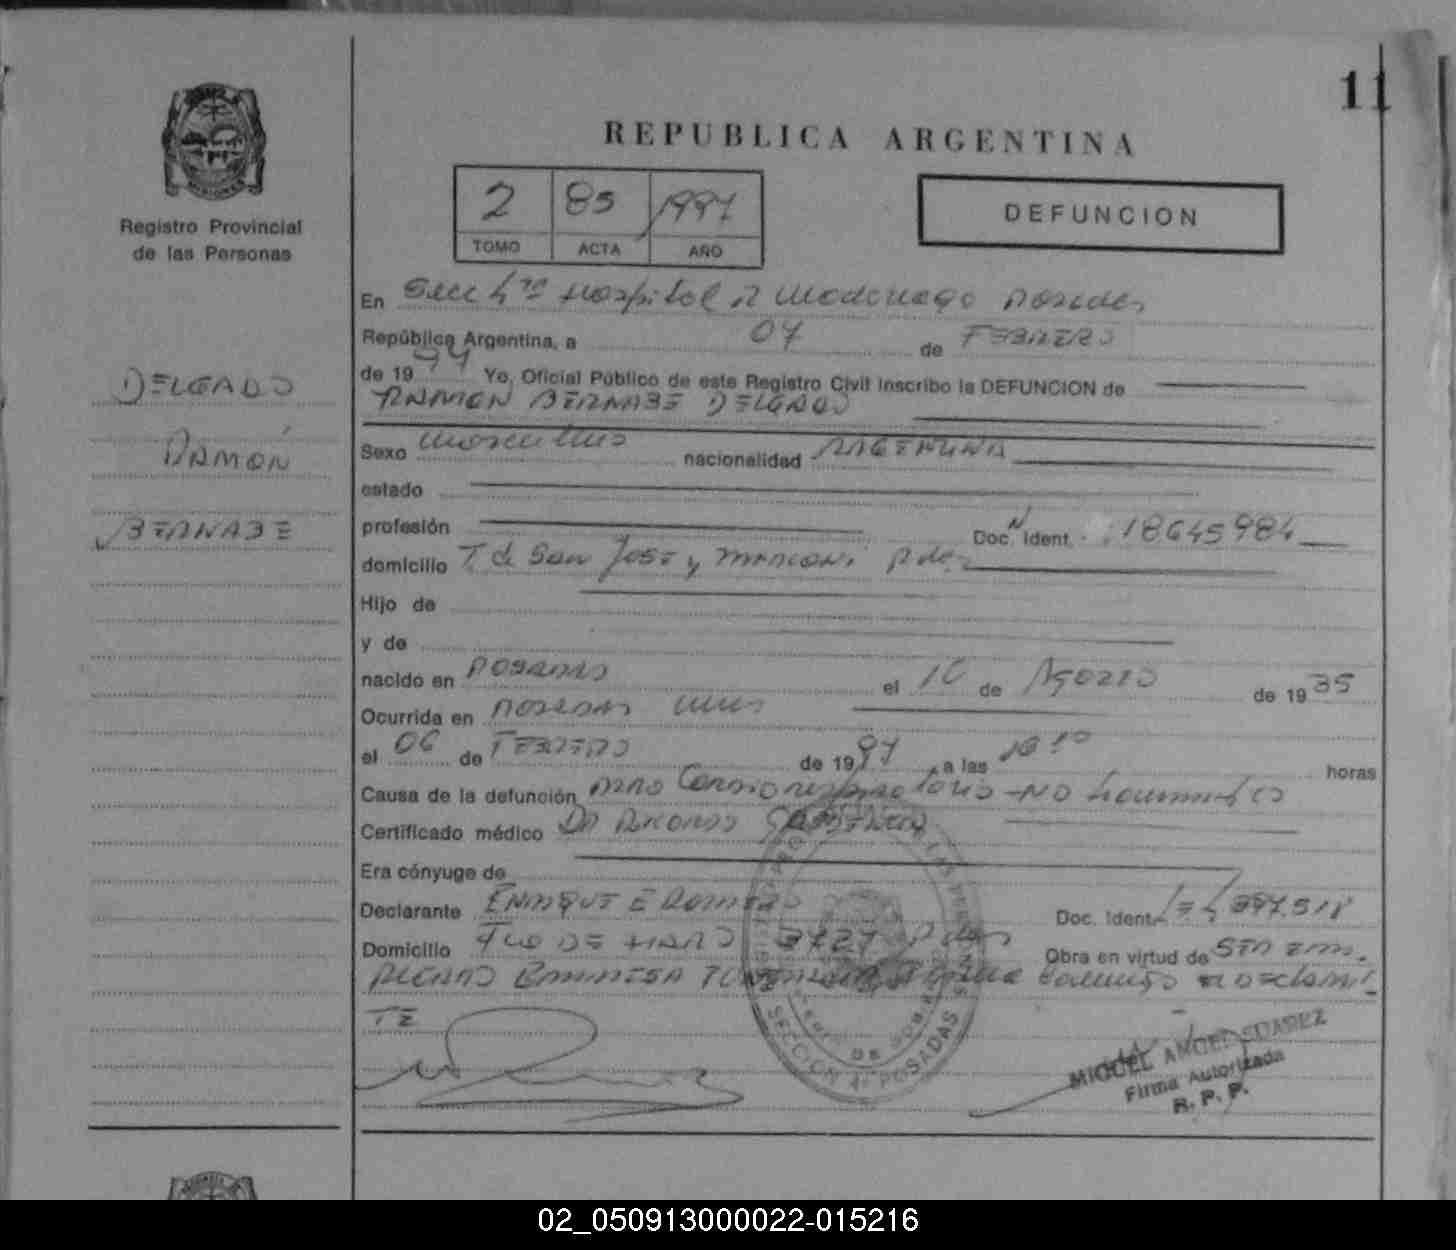 11
REPUBLICA ARGENTINA
2 85 1997
TOMO ACTA AÑO
DEFUNCION
MISIONES
Registro Provincial
de las Personas
DELGADO
RAMÓN
BERNABE
En Secc 4ta Hospital R Madariaga Posadas
República Argentina, a 07 de FEBRERO
de 19 97 Yo, Oficial Público de este Registro Civil Inscribo la DEFUNCION de
RAMON BERNABE DELGADO
Sexo masculino nacionalidad ARGENTINA
estado
profesión Doc. N Ident. 18645984
domicilio T. de San José y MARCONI Pdas
Hijo de
y de
nacido en POSADAS el 10 de AGOSTO de 19 35
Ocurrida en POSADAS Mnes
el 06 de FEBRERO de 19 97 a las 10 10 horas
Causa de la defunción PARO Cardiorespiratorio - NO traumático
Certificado médico DR RICARDO
Era cónyuge de
Declarante ENRIQUE E Doc. Ident. 397.518
Domicilio DE HARO 3727 Pdas Obra en virtud de SER
firma conmigo EL DECLARAN
TE
SECCION 4ª POSADAS
MIGUEL ANGEL SUAREZ
Firma Autorizada
R. P. P.
02_050913000022-015216